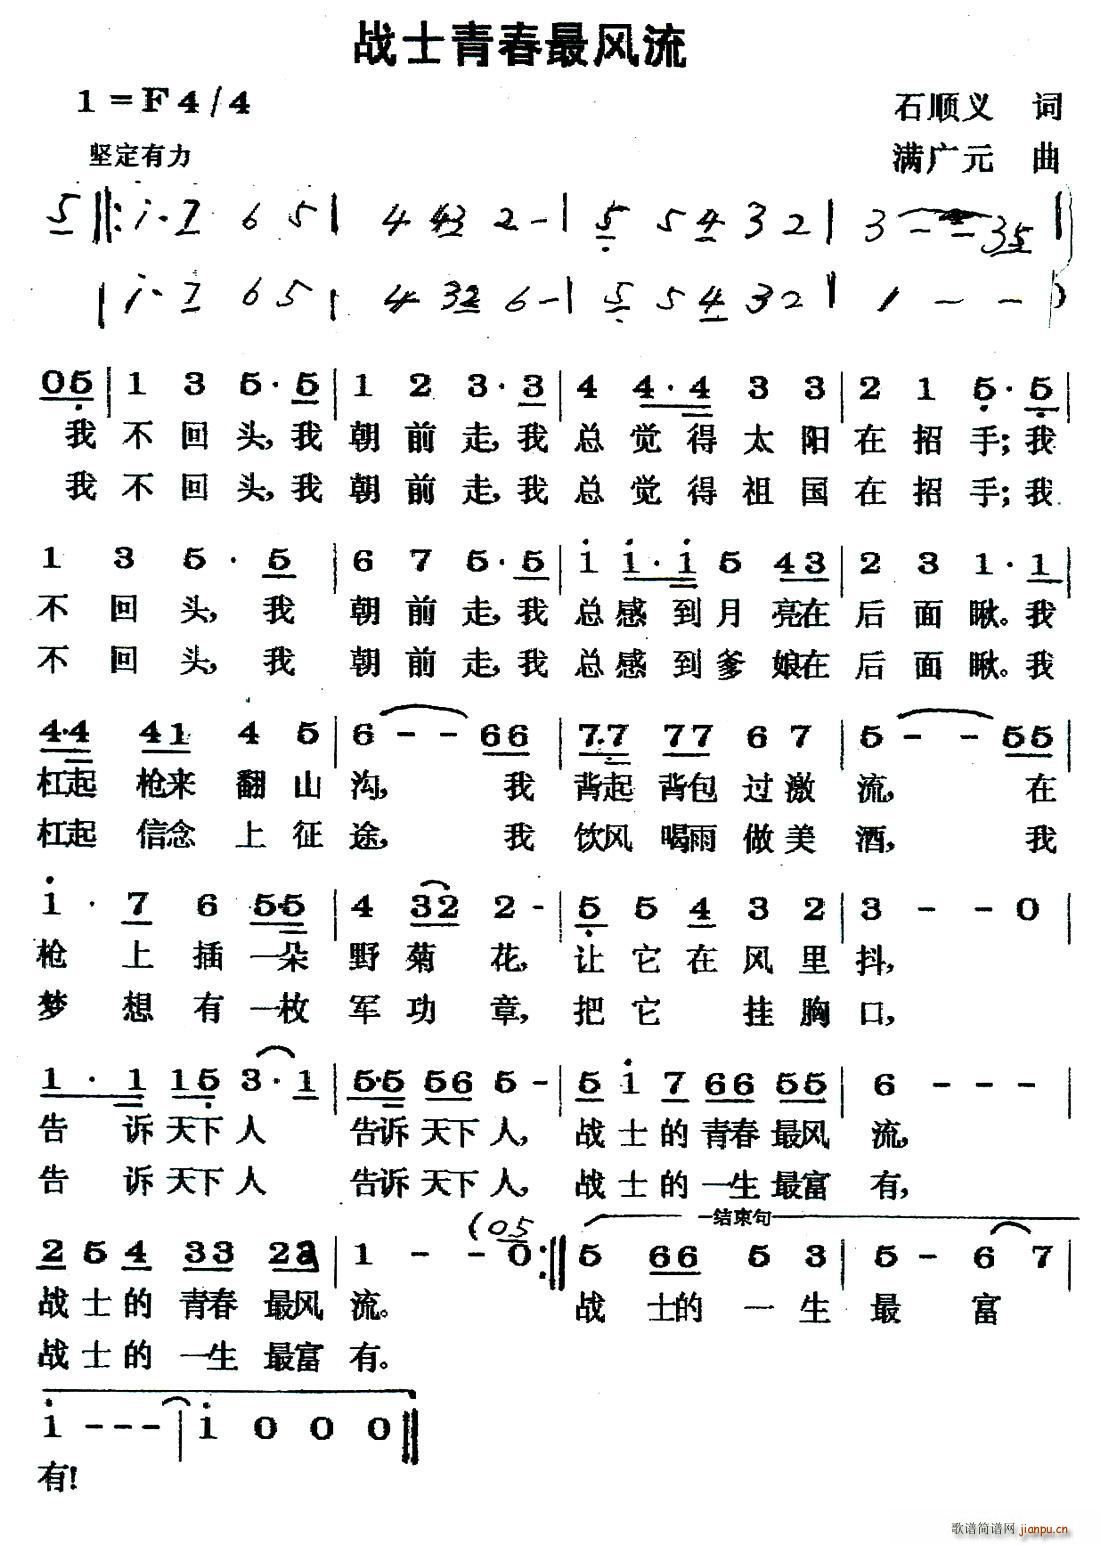 战士青春最风流
1=F4/4
石顺义 词
坚定有力
满广元 曲
5 ‖: i· 7 6 5 | 4 43 2 - | 5 5 4 3 2 | 3 - - 35 |
| i· 7 6 5 | 4 32 6 - | 5 5 4 3 2 | 1 - - )
05 | 1 3 5· 5 | 1 2 3· 3 | 4 4·4 3 3 | 2 1 5· 5 |
我 不 回 头,我 朝 前 走,我 总 觉 得 太 阳 在 招 手;我
我 不 回 头,我 朝 前 走,我 总 觉 得 祖 国 在 招 手;我
1 3 5· 5 | 6 7 5· 5 | i i·i 5 43 | 2 3 1· 1 |
不 回 头, 我 朝 前 走,我 总 感 到 月 亮在 后 面 瞅。我
不 回 头, 我 朝 前 走,我 总 感 到 爹 娘在 后 面 瞅。我
4·4 41 4 5 | 6 - - 66 | 7·7 77 6 7 | 5 - - 55 |
扛起 枪来 翻 山 沟, 我 背起 背包 过 激 流, 在
扛起 信念 上 征 途, 我 饮风 喝雨 做 美 酒, 我
i· 7 6 5·5 | 4 32 2 - | 5 5 4 3 2 | 3 - - 0 |
枪 上 插 一朵 野 菊 花, 让 它 在 风 里 抖,
梦 想 有 一枚 军 功 章, 把 它 挂 胸 口,
1· 1 15 3· 1 | 5·5 56 5 - | 5 i 7 66 55 | 6 - - - |
告 诉 天下 人 告诉 天下 人, 战 士 的 青春 最风 流,
告 诉 天下 人 告诉 天下 人, 战 士 的 一生 最富 有,
(05
结束句
2 5 4 33 23 | 1 - - 0 :‖ 5 66 5 3 | 5 - 6 7 |
战 士 的 青春 最风 流。 战 士的 一 生 最 富
战 士 的 一生 最富 有。
i - - - | i 0 0 0 ‖
有!
歌谱简谱网 jianpu.cn